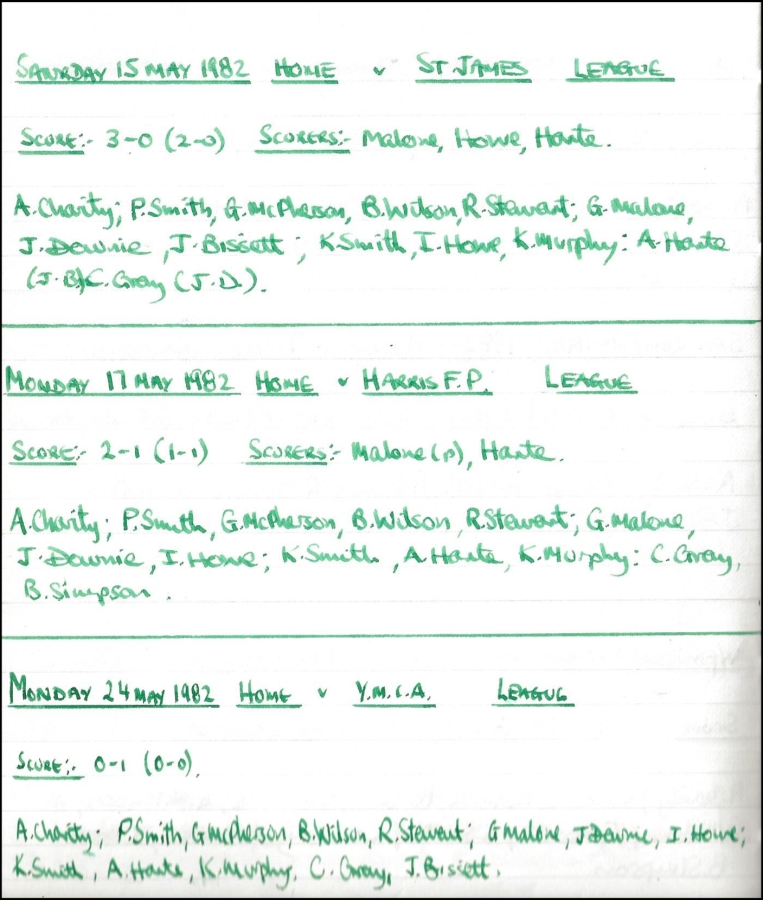 SATURDAY 15 MAY 1982 HOME v ST JAMES LEAGUE
SCORE:- 3-0 (2-0) SCORERS:- Malone, Howe, Harte.
A.Charity; P.Smith, G.McPherson, B.Wilson, R.Stewart; G.Malone,
J.Downie, J.Bissett; K.Smith, I.Howe, K.Murphy: A.Harte
(J.B) C.Gray (J.D).
MONDAY 17 MAY 1982 HOME v HARRIS F.P. LEAGUE
SCORE:- 2-1 (1-1) SCORERS:- Malone (p), Harte.
A.Charity; P.Smith, G.McPherson, B.Wilson, R.Stewart; G.Malone,
J.Downie, I.Howe; K.Smith, A.Harte, K.Murphy: C.Gray,
B.Simpson.
MONDAY 24 MAY 1982 HOME v Y.M.C.A. LEAGUE
SCORE:- 0-1 (0-0).
A.Charity; P.Smith, G McPherson, B.Wilson, R.Stewart; G Malone, J Downie, I.Howe;
K.Smith, A.Harte, K.Murphy. C.Gray, J.Bissett.